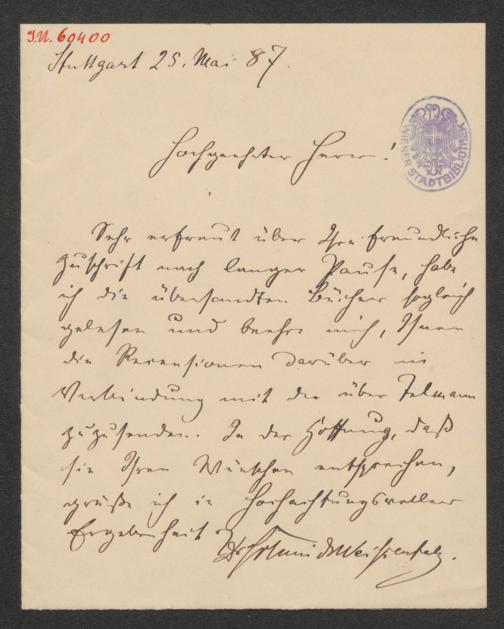 I.N. 60400
Stuttgart 25. Mai 87.
WIENER STADTBIBLIOTHEK
Hochgeehrter Herr!
Sehr erfreut über Ihre freundliche
Zuschrift nach langer Pause, habe
ich die übersandten Bücher sogleich
gelesen und beehre mich, Ihnen
die Recensionen darüber in
Verbindung mit der über Telmann
zuzusenden. In der Hoffnung, daß
sie Ihren Wünschen entsprechen,
grüße ich in hochachtungsvoller
Ergebenheit
Dr Schmidt Weißenfels.